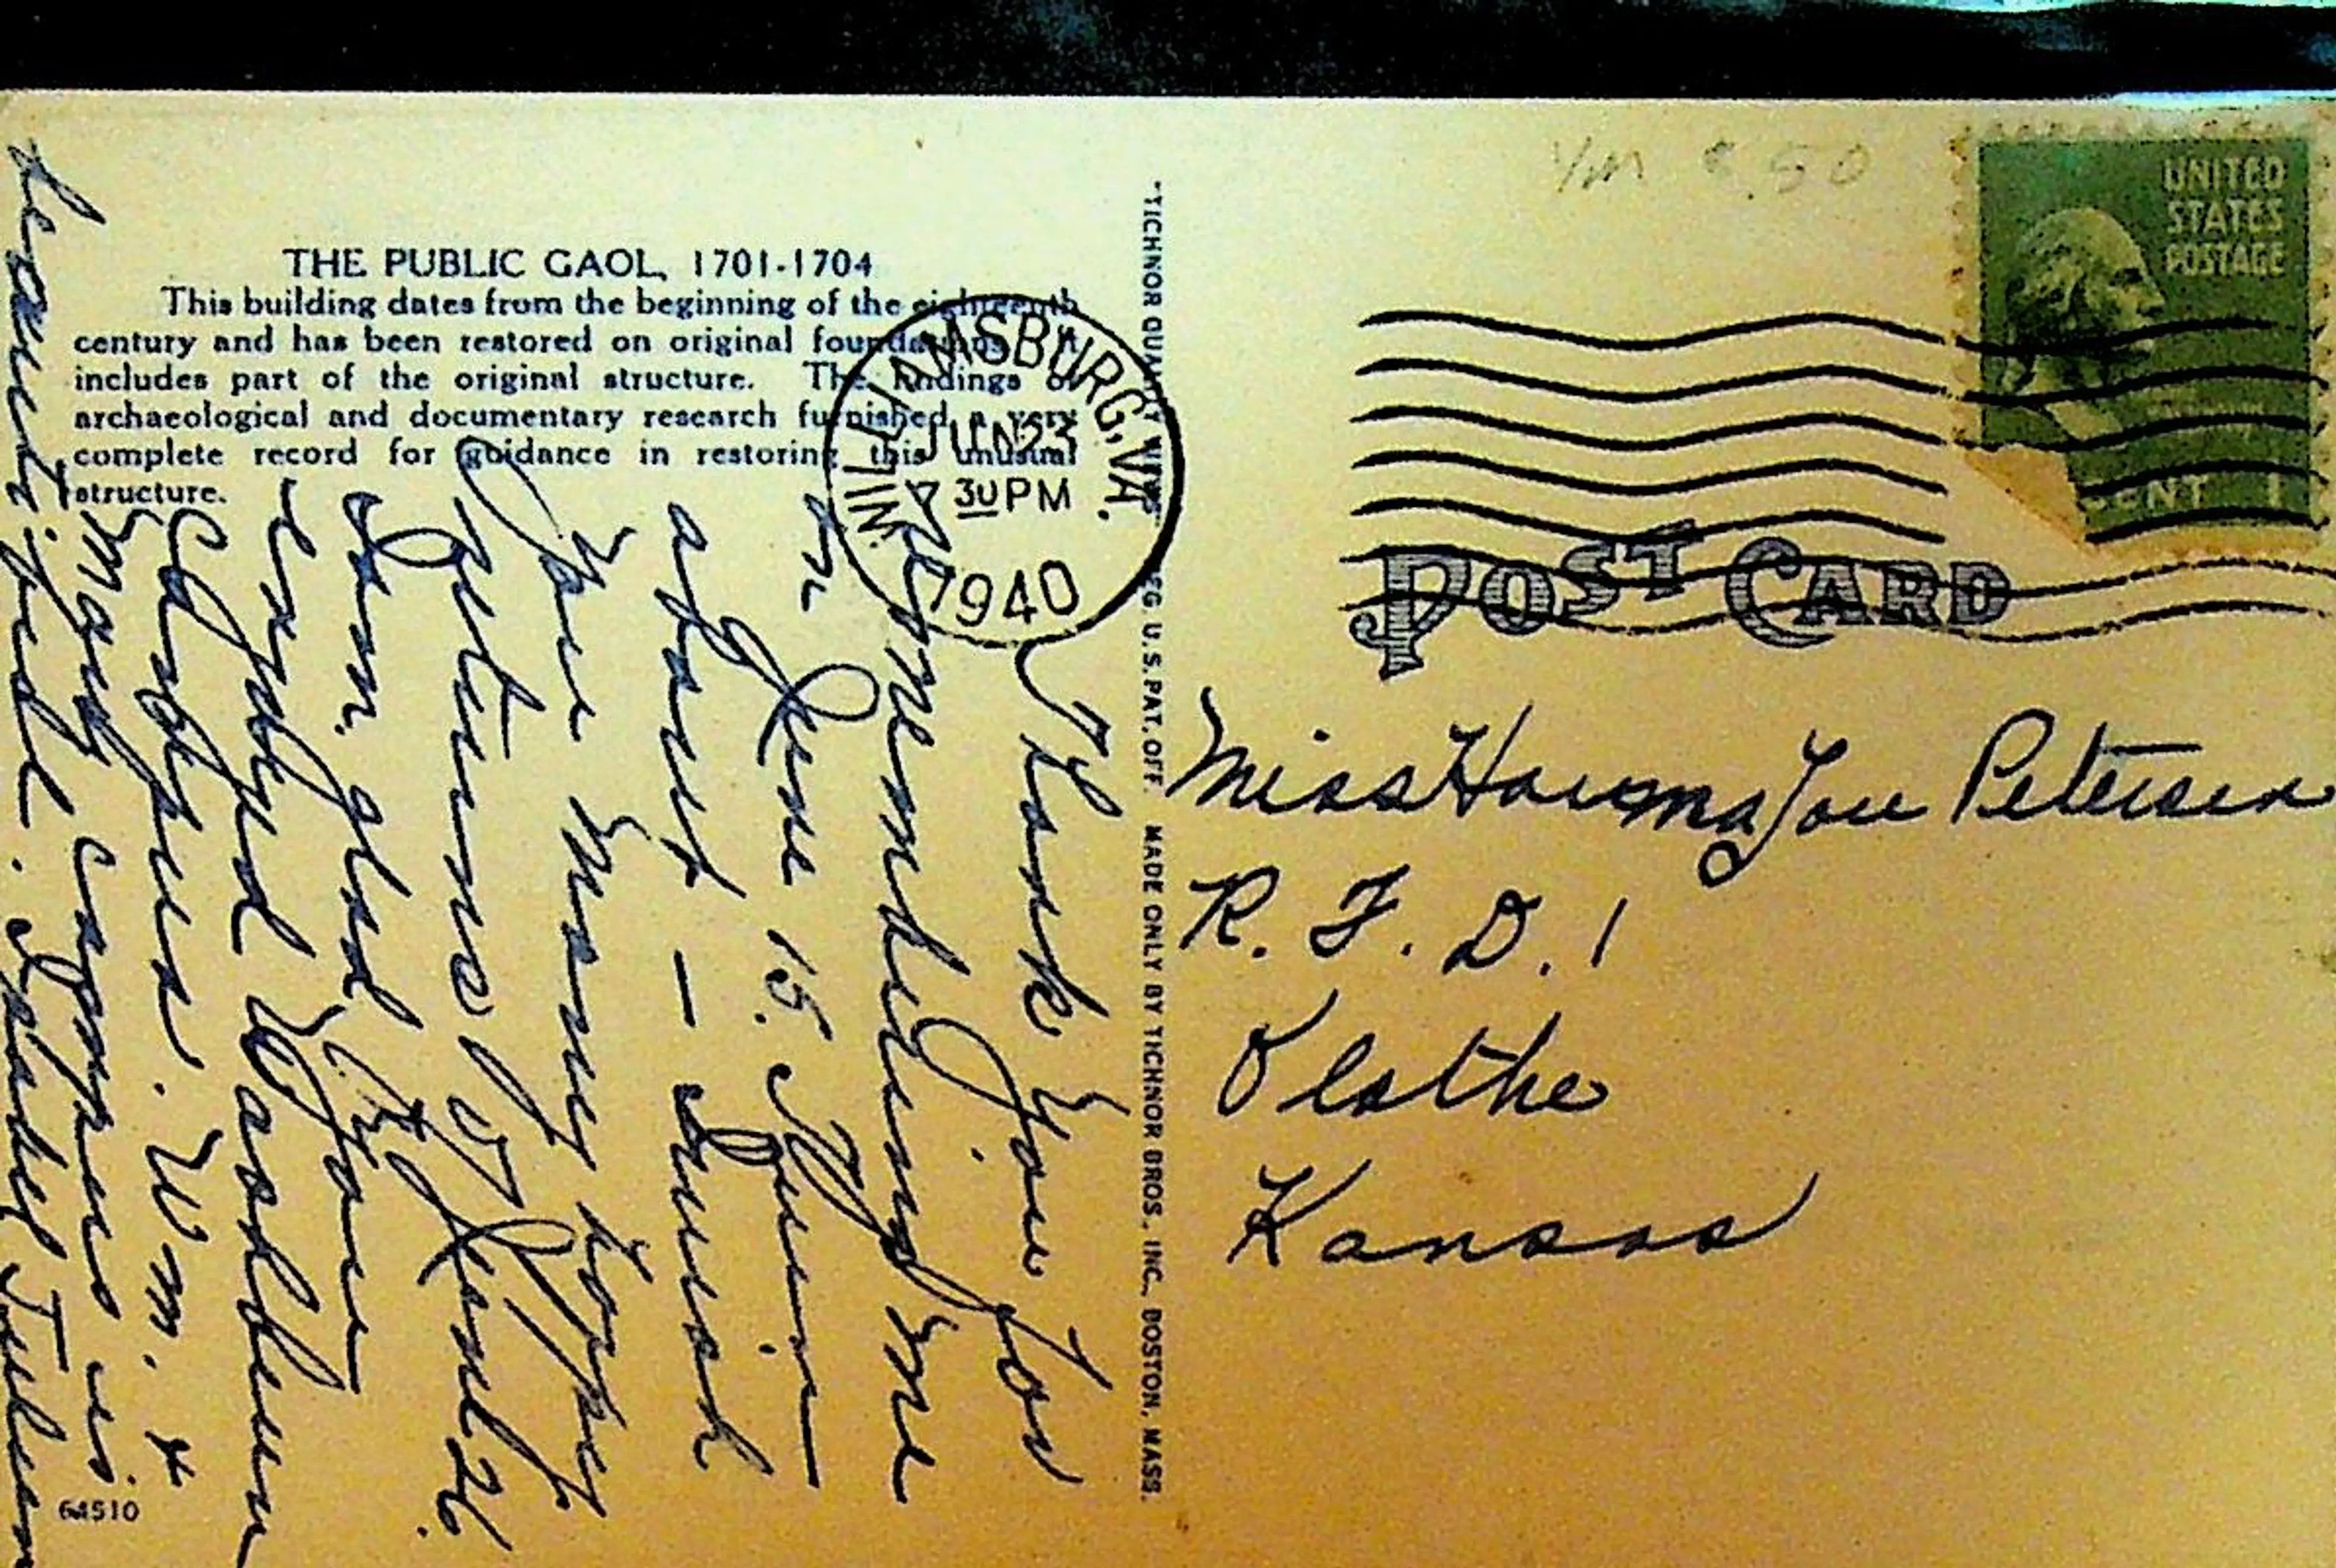 THE PUBLIC GAOL, 1701-1704
This building dates from the beginning of the eighteenth
century and has been restored on original foundations. It
includes part of the original structure. The findings of
archaeological and documentary research furnished a very
complete record for guidance in restoring this unusual
structure.
WILLIAMSBURG, VA.
JUN 23
30 PM
1940
Thank you for
remembering me
on June 15.
about — I wish
you many happy
returns of June 26.
I am glad you
enjoyed Washburn
Campus. Wm. &
Mary campus is
beautiful. Isabel
64510
"TICHNOR QUALITY VIEWS" REG. U.S. PAT. OFF. MADE ONLY BY TICHNOR BROS., INC., BOSTON, MASS.
$.50
UNITED
STATES
POSTAGE
CENT 1
POST CARD
Miss Lou Petersen
R. F. D. 1
Olathe
Kansas